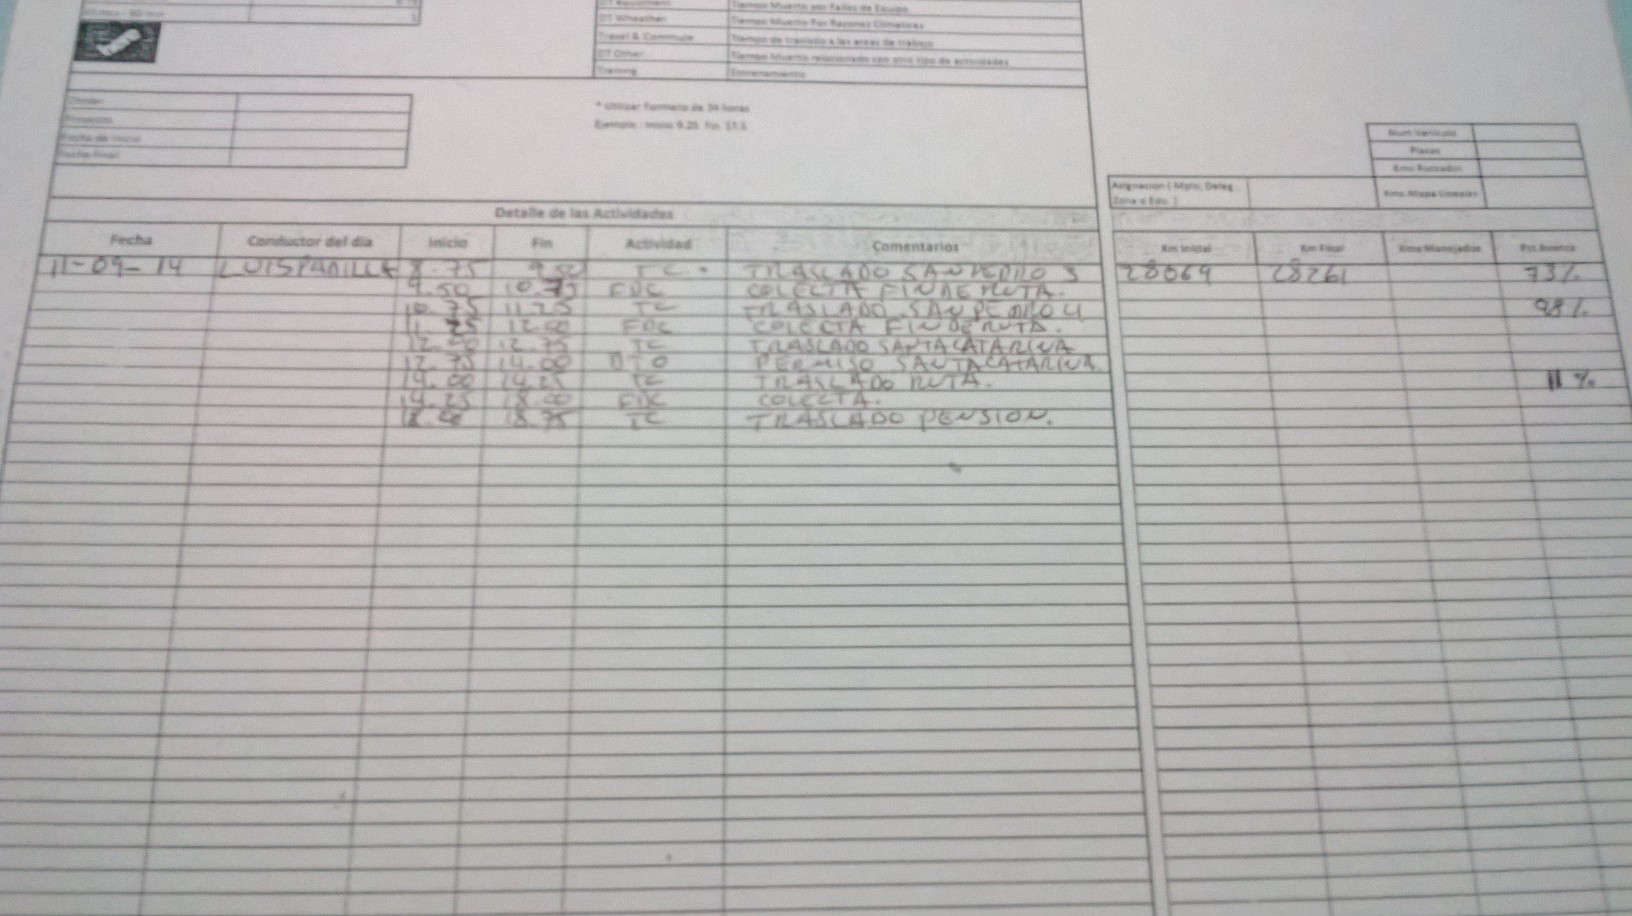 Tiempo Muerto por Fallas de Equipo
DT Wheather Tiempo Muerto Por Razones Climaticas
Travel & Commute Tiempo de traslado a las areas de trabajo
DT Other Tiempo Muerto relacionado con otro tipo de actividades
Training Entrenamiento
* Utilizar Formato de 24 horas
Ejemplo : Inicio 9.25 Fin 17.5
Fecha de Inicio
Fecha Final
Num Vehiculo
Placas
Asignacion ( Mpio, Deleg.
Zona o Edo. )
Detalle de las Actividades
Fecha Conductor del dia Inicio Fin Actividad Comentarios Km Inicial Km Final Kms Manejados
11-09-14 LUIS PADILLA 8.75 9.50 TC. TRASLADO SAN PEDRO 3 28069 28261 73%
9.50 10.75 FDC COLECTA FIN DE RUTA.
10.75 11.25 TC TRASLADO SAN PEDRO 4 98%
11.25 12.50 FDC COLECTA FIN DE RUTA.
12.50 12.75 TC TRASLADO SANTA CATARINA
12.75 14.00 DTO PERMISO SANTA CATARINA.
14.00 14.25 TC TRASLADO RUTA. 11%
14.25 18.00 FDC COLECTA.
18.00 18.75 TC TRASLADO PENSION.